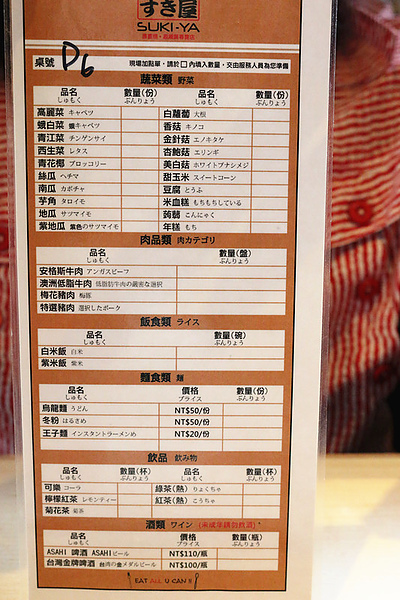 すき屋
SUKI-YA
桌號 D6 現場加點單，請於□內填入數量，交由服務人員為您準備
蔬菜類 野菜
品名 數量(份) 品名 數量(份)
しゅもく ぶんりょう しゅもく ぶんりょう
高麗菜 キャベツ 白蘿蔔 大根
娥白菜 娥キャベツ 香菇 キノコ
青江菜 チンゲンサイ 金針菇 エノキタケ
西生菜 レタス 杏鮑菇 エリンギ
青花椰 ブロッコリー 美白菇 ホワイトブナシメジ
絲瓜 ヘチマ 甜玉米 スイートコーン
南瓜 カボチャ 豆腐 とうふ
芋角 タロイモ 米血糕 もちもちしている
地瓜 サツマイモ 蒟蒻 こんにゃく
紫地瓜 紫色のサツマイモ 年糕 もち
肉品類 肉カテゴリ
品名 數量(盤)
しゅもく ぶんりょう
安格斯牛肉 アンガスビーフ
澳洲低脂牛肉 低脂肪牛肉の厳密な選択
梅花豬肉 梅豚
特選豬肉 選択したポータ
飯食類 ライス
品名 數量(碗)
しゅもく ぶんりょう
白米飯 白米
紫米飯 紫米
麵食類 麺
品名 價格 數量(份)
しゅもく プライス ぶんりょう
烏龍麵 うどん NT$50/份
冬粉 はるさめ NT$50/份
王子麵 インスタントラーメンめ NT$20/份
飲品 飲み物
品名 數量(杯) 品名 數量(杯)
しゅもく ぶんりょう しゅもく ぶんりょう
可樂 コーラ 綠茶(熱) りょくちゃ
檸檬紅茶 レモンティー 紅茶(熱) こうちゃ
菊花茶 菊茶
酒類 ワイン (未成年請勿飲酒)
品名 價格 數量(瓶)
しゅもく プライス ぶんりょう
ASAHI 啤酒 ASAHIビール NT$110/瓶
台灣金牌啤酒 台湾の金メダルビール NT$100/瓶
EAT ALL U CAN !!